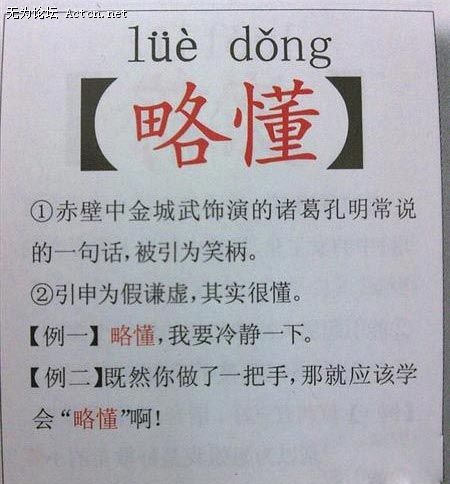 无为论坛 Actcn.net
lüè dǒng
【略懂】
①赤壁中金城武饰演的诸葛孔明常说
的一句话，被引为笑柄。
②引申为假谦虚，其实很懂。
【例一】略懂，我要冷静一下。
【例二】既然你做了一把手，那就应该学
会“略懂”啊！